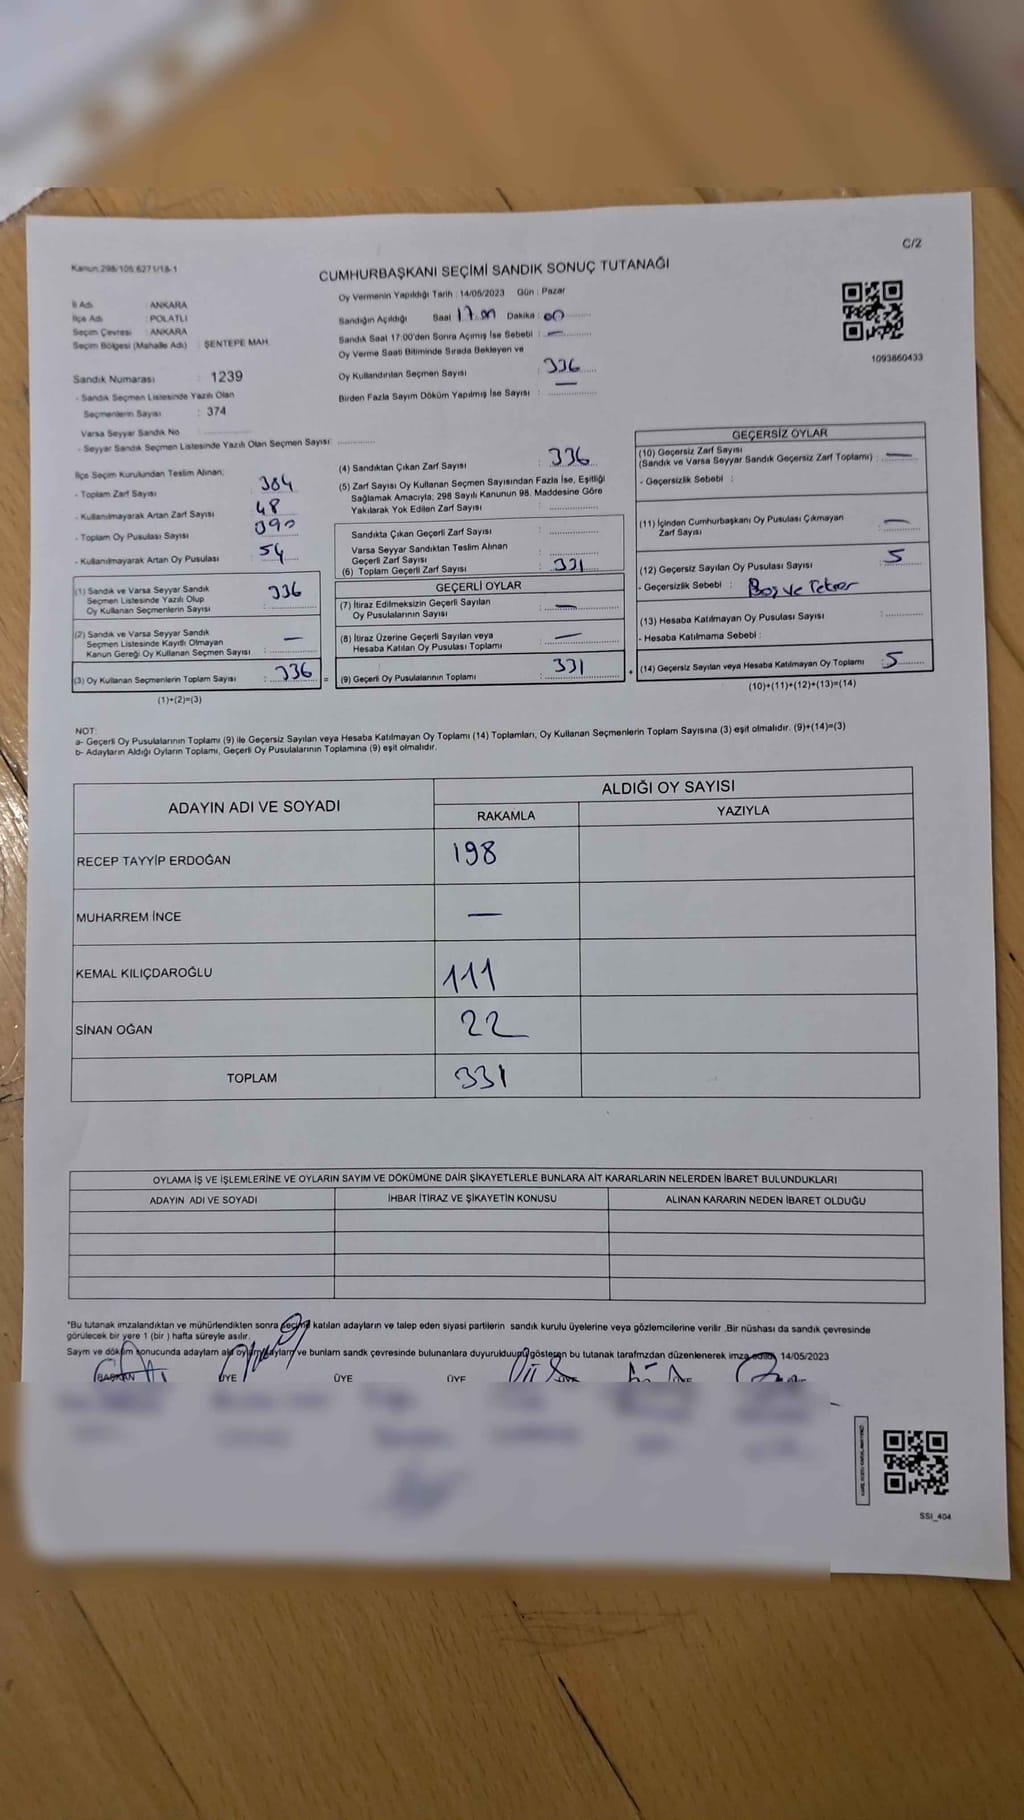 C/2
Kanun:298/105:6271/18-1
CUMHURBAŞKANI SEÇİMİ SANDIK SONUÇ TUTANAĞI
Oy Vermenin Yapıldığı Tarih : 14/05/2023 Gün : Pazar
İl Adı : ANKARA
İlçe Adı : POLATLI
Seçim Çevresi : ANKARA
Seçim Bölgesi (Mahalle Adı) : ŞENTEPE MAH.
Sandığın Açıldığı Saat 17.00 Dakika : 00
Sandık Saat 17:00'den Sonra Açmış İse Sebebi : —
Oy Verme Saati Bitiminde Sırada Bekleyen ve
Oy Kullandırılan Seçmen Sayısı : 336
Birden Fazla Sayım Döküm Yapılmış İse Sayısı : —
1093860433
Sandık Numarası : 1239
- Sandık Seçmen Listesinde Yazılı Olan
Seçmenlerin Sayısı : 374
Varsa Seyyar Sandık No :
- Seyyar Sandık Seçmen Listesinde Yazılı Olan Seçmen Sayısı :
İlçe Seçim Kurulundan Teslim Alınan;
- Toplam Zarf Sayısı : 384
- Kullanılmayarak Artan Zarf Sayısı : 48
- Toplam Oy Pusulası Sayısı : 390
- Kullanılmayarak Artan Oy Pusulası : 54
(1) Sandık ve Varsa Seyyar Sandık
Seçmen Listesinde Yazılı Olup
Oy Kullanan Seçmenlerin Sayısı : 336
(2) Sandık ve Varsa Seyyar Sandık
Seçmen Listesinde Kayıtlı Olmayan
Kanun Gereği Oy Kullanan Seçmen Sayısı : —
(3) Oy Kullanan Seçmenlerin Toplam Sayısı : 336 =
(1)+(2)=(3)
(4) Sandıktan Çıkan Zarf Sayısı : 336
(5) Zarf Sayısı Oy Kullanan Seçmen Sayısından Fazla İse, Eşitliği
Sağlamak Amacıyla; 298 Sayılı Kanunun 98. Maddesine Göre
Yakılarak Yok Edilen Zarf Sayısı :
Sandıkta Çıkan Geçerli Zarf Sayısı :
Varsa Seyyar Sandıktan Teslim Alınan
Geçerli Zarf Sayısı :
(6) Toplam Geçerli Zarf Sayısı : 331
GEÇERLİ OYLAR
(7) İtiraz Edilmeksizin Geçerli Sayılan
Oy Pusulalarının Sayısı : —
(8) İtiraz Üzerine Geçerli Sayılan veya
Hesaba Katılan Oy Pusulası Toplamı : —
(9) Geçerli Oy Pusulalarının Toplamı : 331 +
GEÇERSİZ OYLAR
(10) Geçersiz Zarf Sayısı
(Sandık ve Varsa Seyyar Sandık Geçersiz Zarf Toplamı) : —
- Geçersizlik Sebebi :
(11) İçinden Cumhurbaşkanı Oy Pusulası Çıkmayan
Zarf Sayısı : —
(12) Geçersiz Sayılan Oy Pusulası Sayısı : 5
- Geçersizlik Sebebi : Boş ve Tekrar
(13) Hesaba Katılmayan Oy Pusulası Sayısı :
- Hesaba Katılmama Sebebi :
(14) Geçersiz Sayılan veya Hesaba Katılmayan Oy Toplamı : 5
(10)+(11)+(12)+(13)=(14)
NOT:
a- Geçerli Oy Pusulalarının Toplamı (9) ile Geçersiz Sayılan veya Hesaba Katılmayan Oy Toplamı (14) Toplamları, Oy Kullanan Seçmenlerin Toplam Sayısına (3) eşit olmalıdır. (9)+(14)=(3)
b- Adayların Aldığı Oyların Toplamı, Geçerli Oy Pusulalarının Toplamına (9) eşit olmalıdır.
ADAYIN ADI VE SOYADI ALDIĞI OY SAYISI
RAKAMLA YAZIYLA
RECEP TAYYİP ERDOĞAN 198
MUHARREM İNCE —
KEMAL KILIÇDAROĞLU 111
SİNAN OĞAN 22
TOPLAM 331
OYLAMA İŞ VE İŞLEMLERİNE VE OYLARIN SAYIM VE DÖKÜMÜNE DAİR ŞİKAYETLERLE BUNLARA AİT KARARLARIN NELERDEN İBARET BULUNDUKLARI
ADAYIN ADI VE SOYADI İHBAR İTİRAZ VE ŞİKAYETİN KONUSU ALINAN KARARIN NEDEN İBARET OLDUĞU
*Bu tutanak imzalandıktan ve mühürlendikten sonra seçime katılan adayların ve talep eden siyasi partilerin sandık kurulu üyelerine veya gözlemcilerine verilir .Bir nüshası da sandık çevresinde
görülecek bir yere 1 (bir ) hafta süreyle asılır.
Sayım ve döküm sonucunda adayların ve bunların sandık çevresinde bulunanlara duyurulduunu gösteren bu tutanak tarafımzdan düzenlenerek imza edildi. 14/05/2023
BAŞKAN ÜYE ÜYE ÜYE ÜYE ÜYE
SSI_404